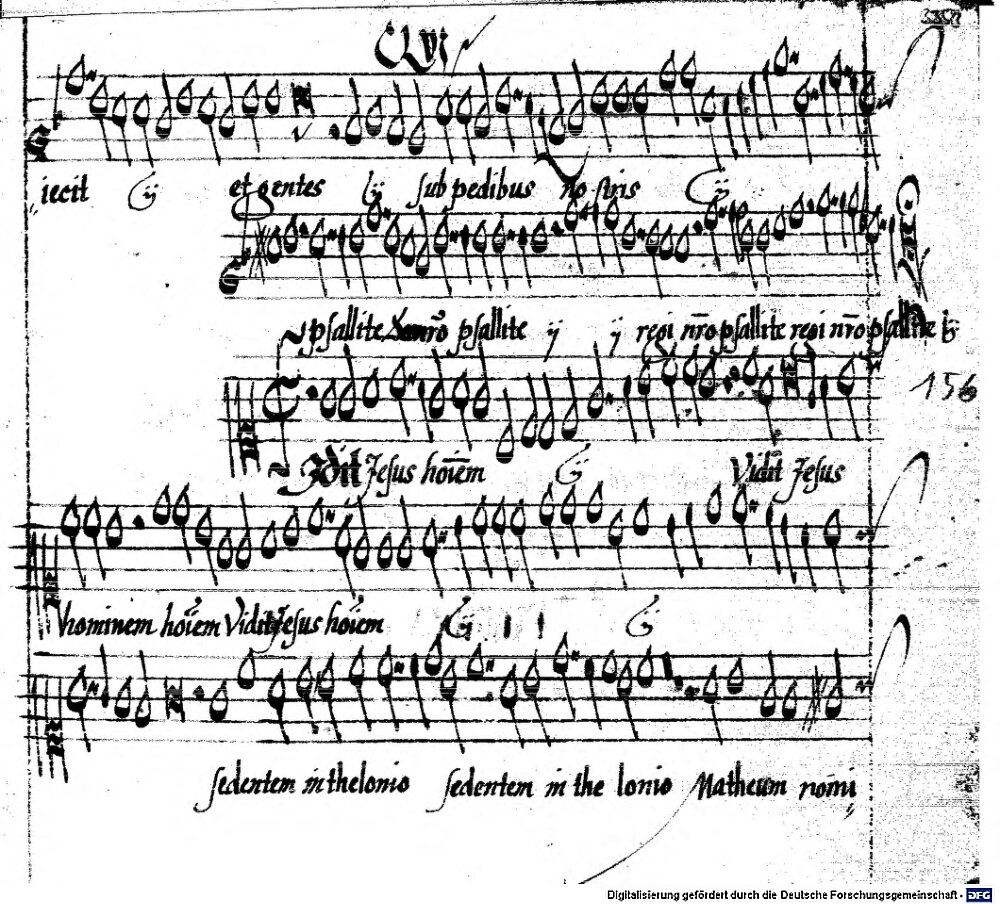 CLVI
iecit ij et gentes ij sub pedibus nostris ij
psallite nro psallite ij ij regi nro psallite regi nro psallite ij
156
Vidit Jesus hoiem ij Vidit Jesus
hominem hoiem Vidit Jesus hoiem ij ij
sedentem in thelonio sedentem in the lonio Matheum nomi
Digitalisierung gefördert durch die Deutsche Forschungsgemeinschaft - DFG